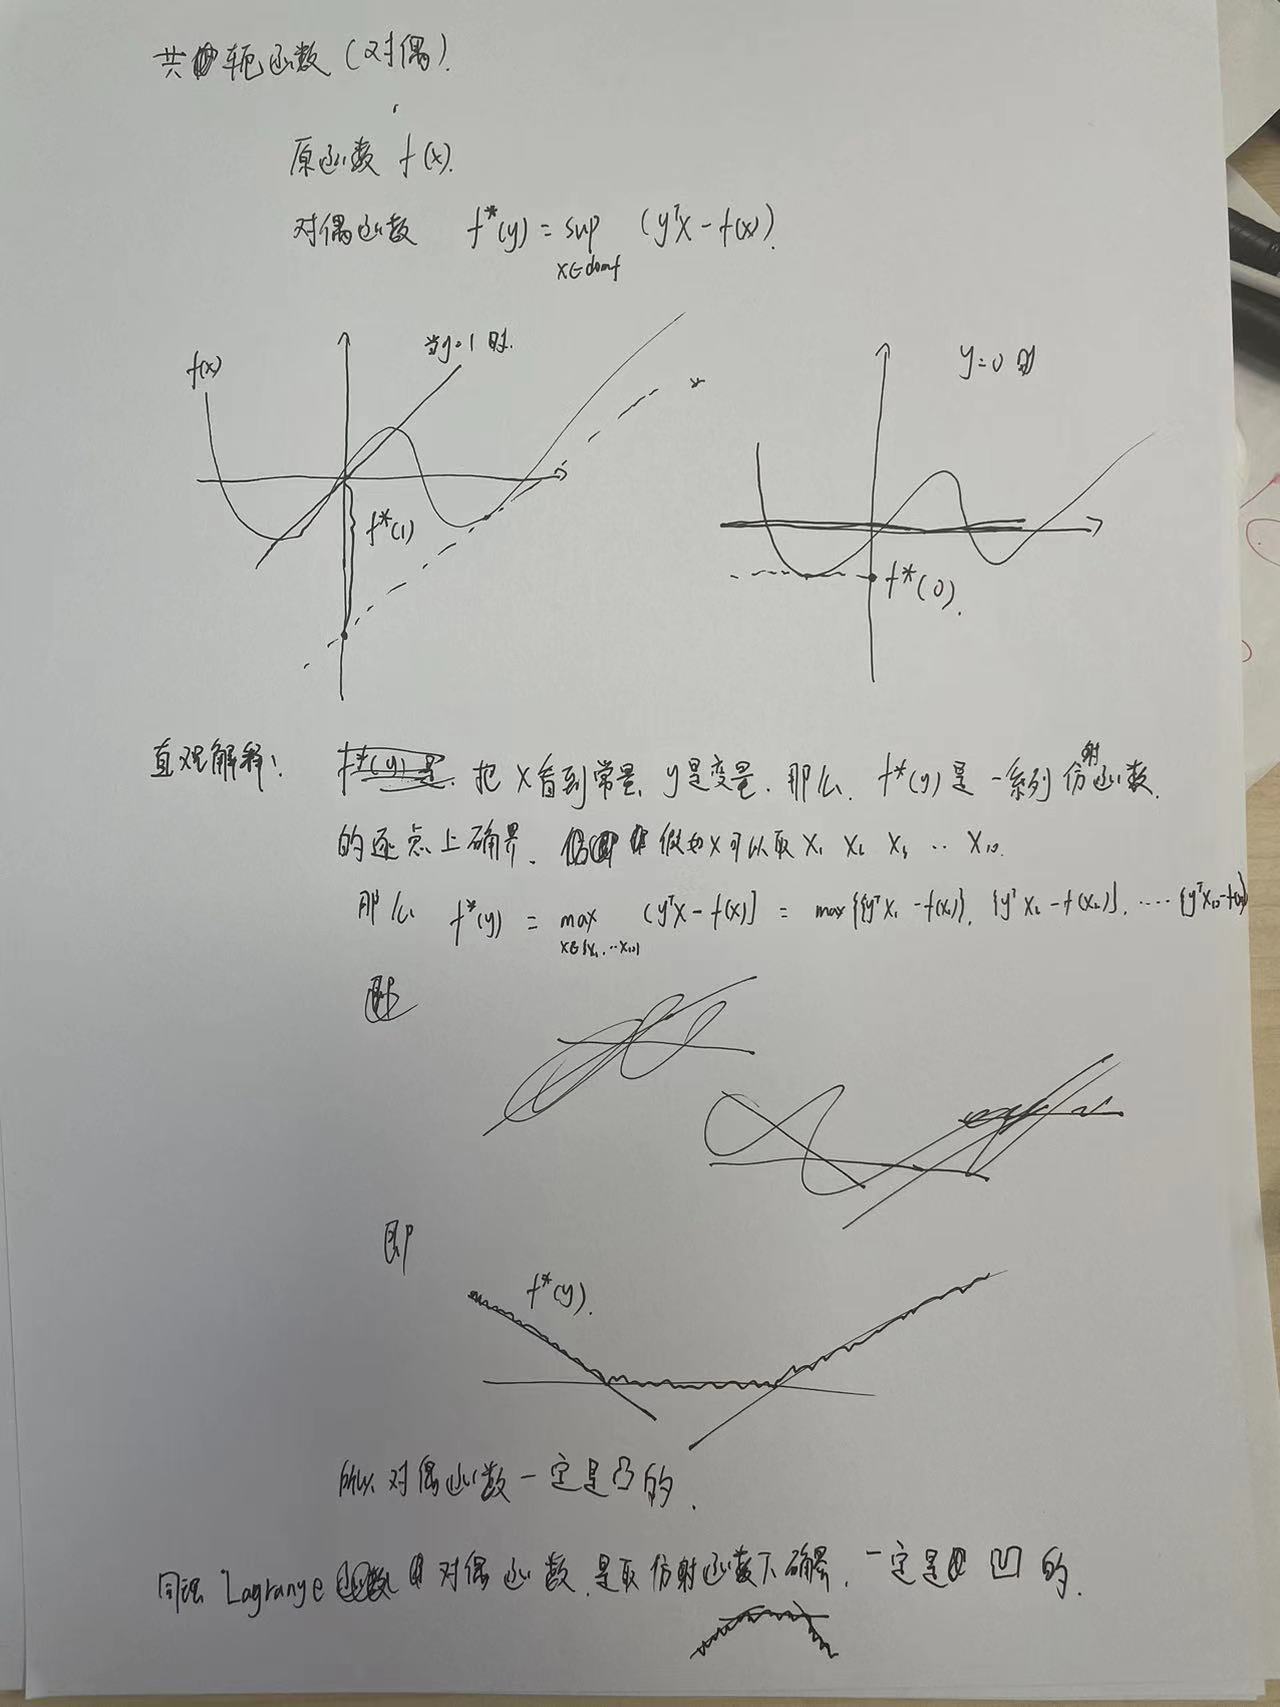 共轭函数(对偶).
原函数 f(x).
对偶函数 f*(y) = sup (yᵀx - f(x)).
x∈domf
f(x)
当y=1时.
y=0时
f*(1)
f*(0).
直观解释: 把x看到常量, y是变量. 那么. f*(y)是一系列仿射函数.
的逐点上确界. 假如x可以取 x₁ x₂ x₃ ... x₁₀.
那么 f*(y) = max (yᵀx - f(x)] = max{{yᵀx₁ - f(x₁)}, {yᵀx₂ - f(x₂)}, .... {yᵀx₁₀ - f(x₁₀)}
x∈{x₁, ...x₁₀}
即
f*(y).
所以对偶函数一定是凸的.
同理 Lagrange 对偶函数是取仿射函数下确界, 一定是凹的.